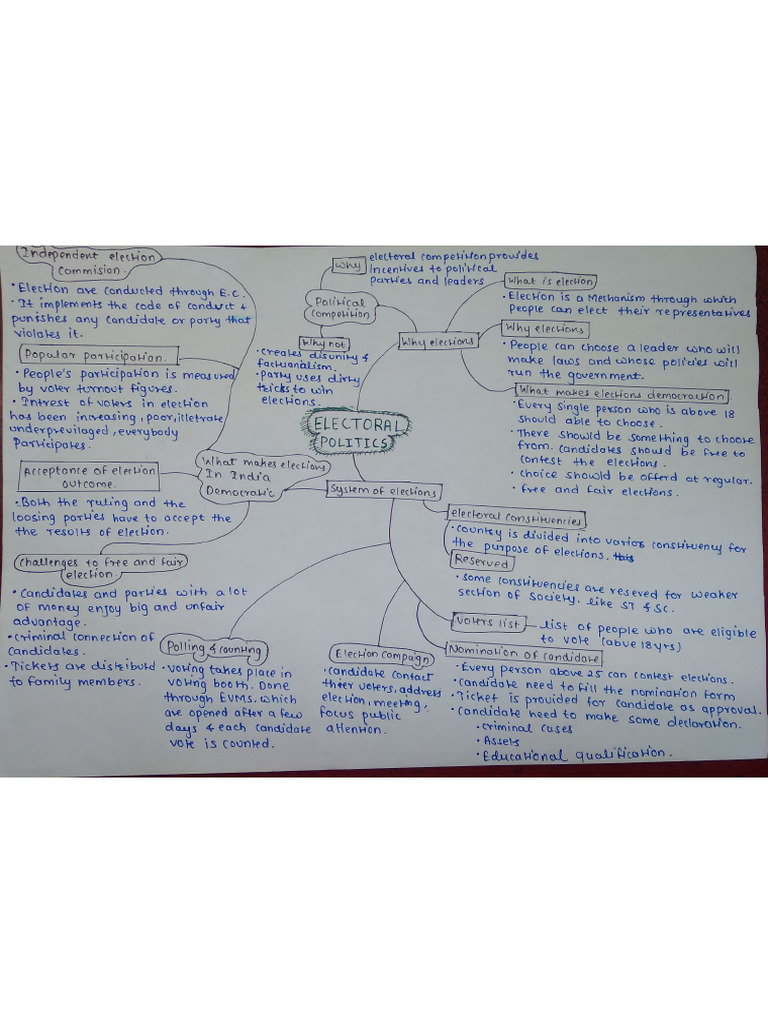 Independent election
Commision.
• Election are conducted through E.C.
• It implements the code of conduct &
punishes any candidate or party that
violates it.
Popular participation.
• People's participation is measured
by voter turnout figures.
• Intrest of voters in election
has been increasing, poor, illetrate,
underprevilaged, everybody
Participates.
Acceptance of election
outcome.
• Both the ruling and the
loosing parties have to accept the
the results of election.
Challenges to free and fair
election.
• Candidates and parties with a lot
of money enjoy big and unfair
advantage.
• Criminal connection of
candidates.
• Tickets are distributd
to family members.
What makes elections
In India
Democratic
Why
electoral competition provides
incentives to political
parties and leaders
Political
competition
Why not
• creates disunity &
factuonalism.
• party uses dirty
tricks to win
elections.
ELECTORAL
POLITICS
Why elections
What is election
• Election is a Mechanism through which
People can elect their representatives
Why elections
• People can choose a leader who will
make laws and whose policies will
run the government.
What makes elections democraction
• Every single person who is above 18
should able to choose.
• There should be something to choose
from. Candidates should be free to
contest the elections.
• choice should be offerd at regular.
• free and fair elections.
System of elections
electoral constituencies
• Country is divided into varios constituency for
the purpose of elections.
Reserved
• some constituencies are reseved for weaker
section of Society. like ST & SC.
Voters list
list of people who are eligible
to vote (abve 18yrs)
Nomination of candidate
• Every person above 25 can contest elections.
• Candidate need to fill the nomination form
• Ticket is provided for candidate as approval.
• Candidate need to make some declaration.
• Criminal cases
• Assets
• Educational qualification.
Election compaign
• Candidate contact
thier voters, address
election, meeting,
focus public
attention.
Polling & counting
• Voting takes place in
voting booth. Done
through EVMs, which
are opened after a few
days & each candidate
vote is counted.